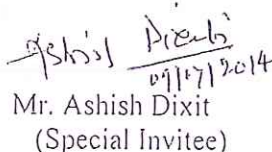 Ashish Dixit
09/07/2014
Mr. Ashish Dixit
(Special Invitee)